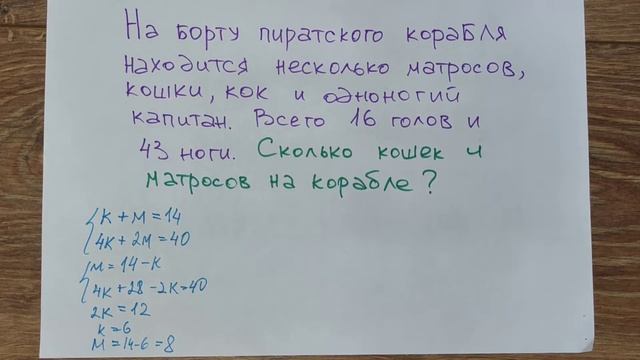 На борту пиратского корабля
находится несколько матросов,
кошки, кок и одноногий
капитан. Всего 16 голов и
43 ноги. Сколько кошек и
матросов на корабле?
к + м = 14
4к + 2м = 40
м = 14 - к
4к + 28 - 2к = 40
2к = 12
к = 6
м = 14 - 6 = 8